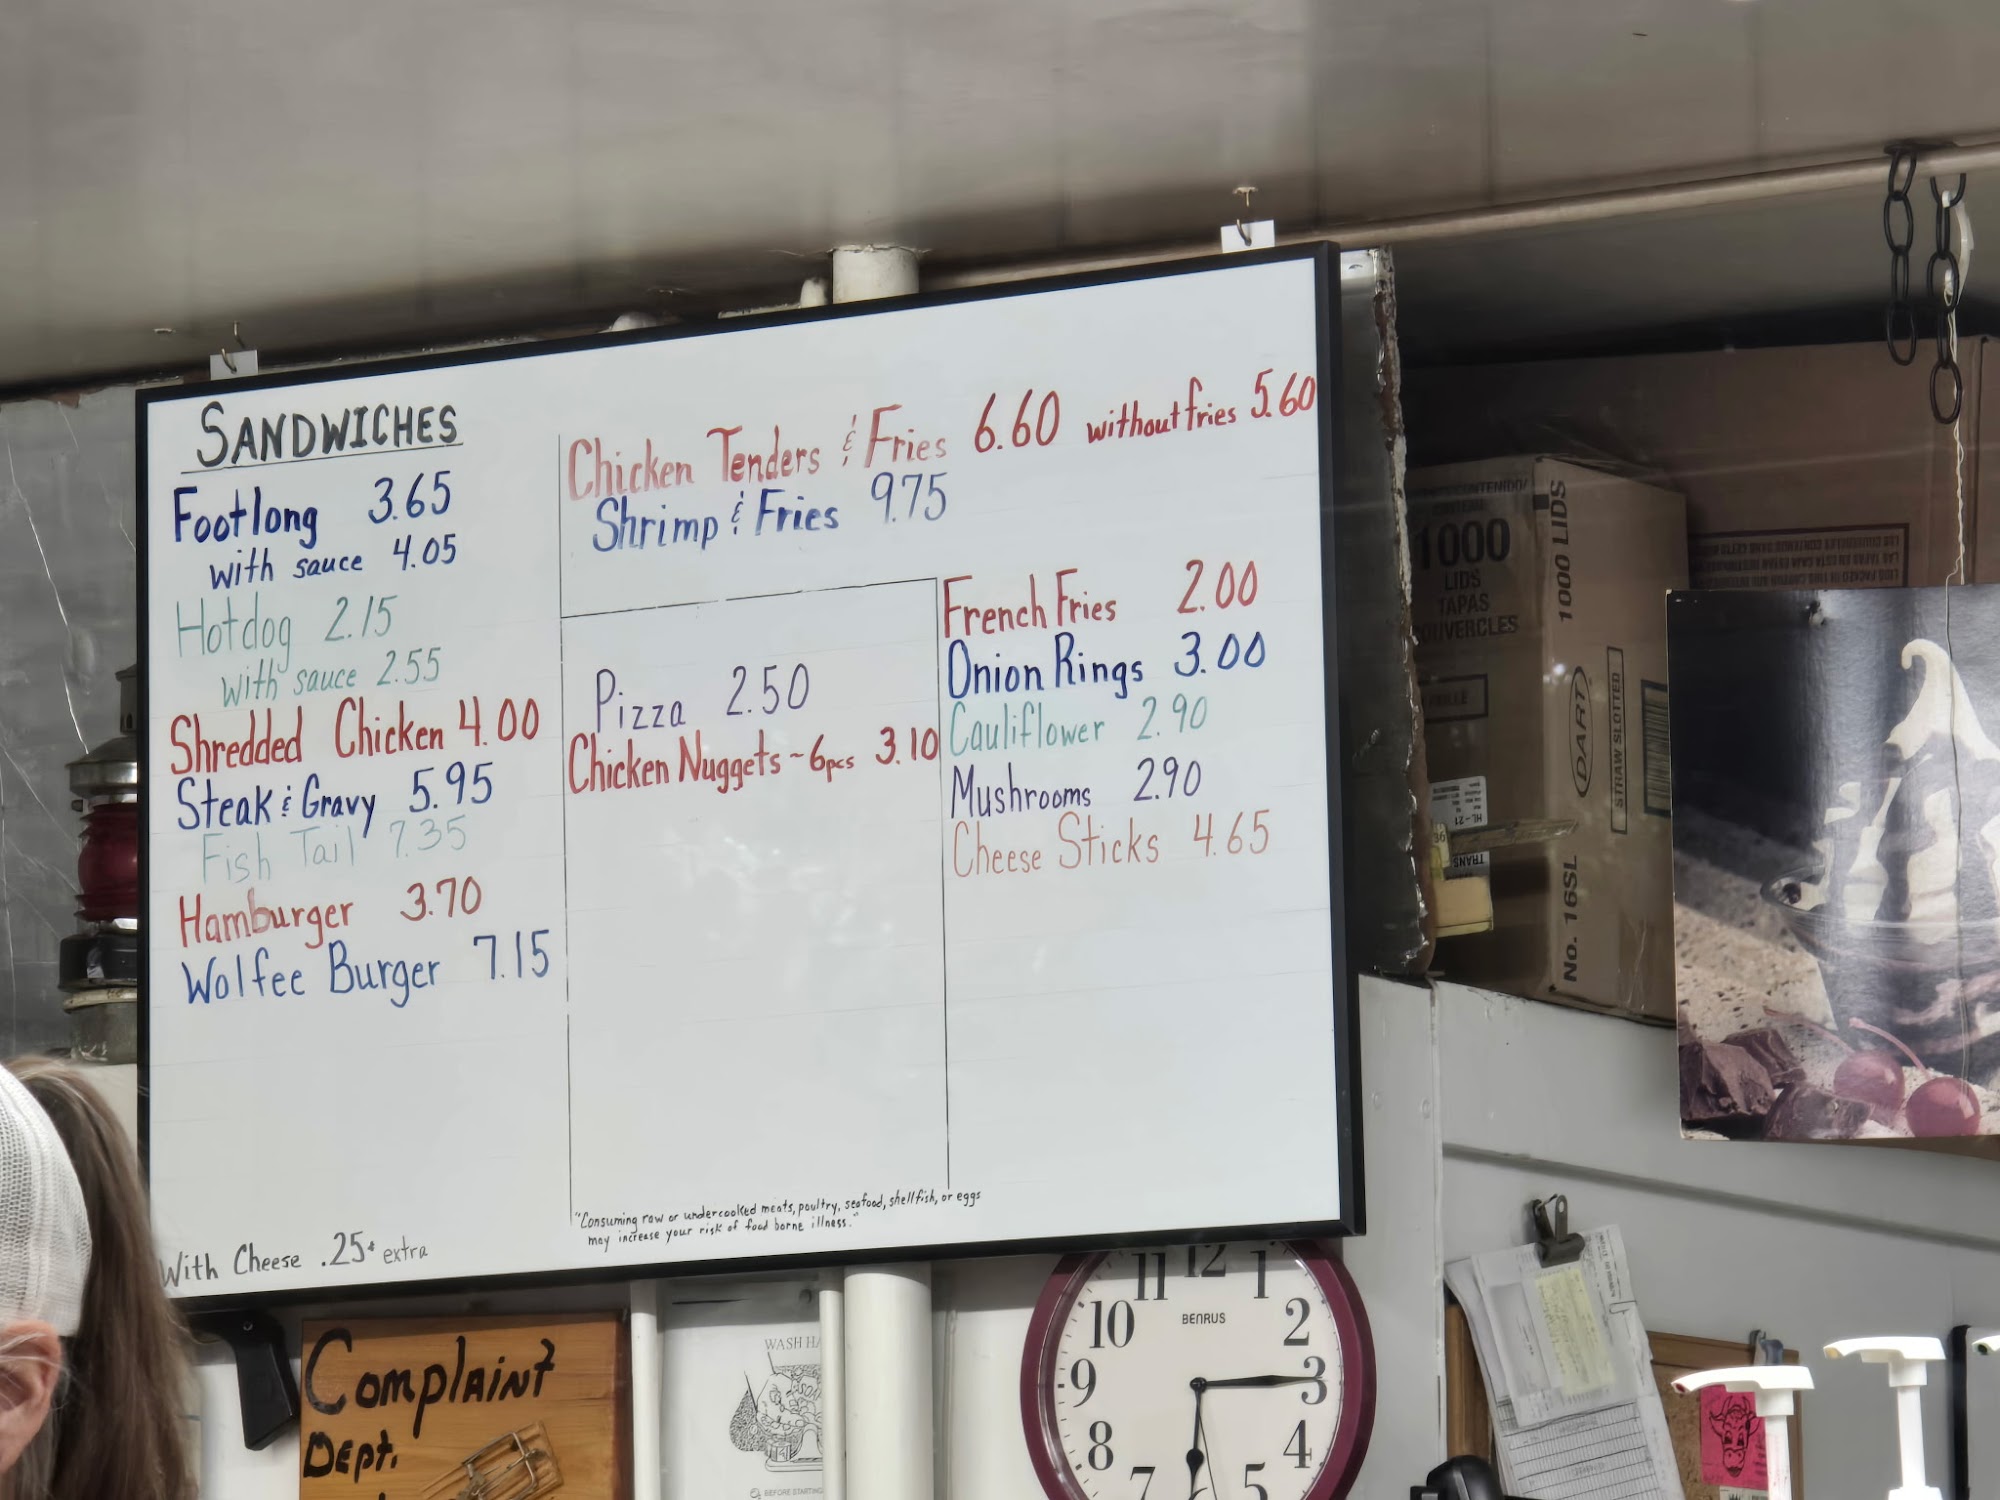 SANDWICHES
Footlong 3.65
with sauce 4.05
Hotdog 2.15
with sauce 2.55
Shredded Chicken 4.00
Steak & Gravy 5.95
Fish Tail 7.35
Hamburger 3.70
Wolfee Burger 7.15
With Cheese .25¢ extra
Chicken Tenders & Fries 6.60 without fries 5.60
Shrimp & Fries 9.75
Pizza 2.50
Chicken Nuggets ~ 6pcs 3.10
French Fries 2.00
Onion Rings 3.00
Cauliflower 2.90
Mushrooms 2.90
Cheese Sticks 4.65
"Consuming raw or undercooked meats, poultry, seafood, shellfish, or eggs
may increase your risk of food borne illness."
1000
LIDS
TAPAS
1000 LIDS
DART
STRAW SLOTTED
No. 16SL
HL-21
TRANS
Complaint
Dept.
WASH HA
BEFORE STARTING
11 12 1
10 2
BENRUS
9 3
8 4
7 5